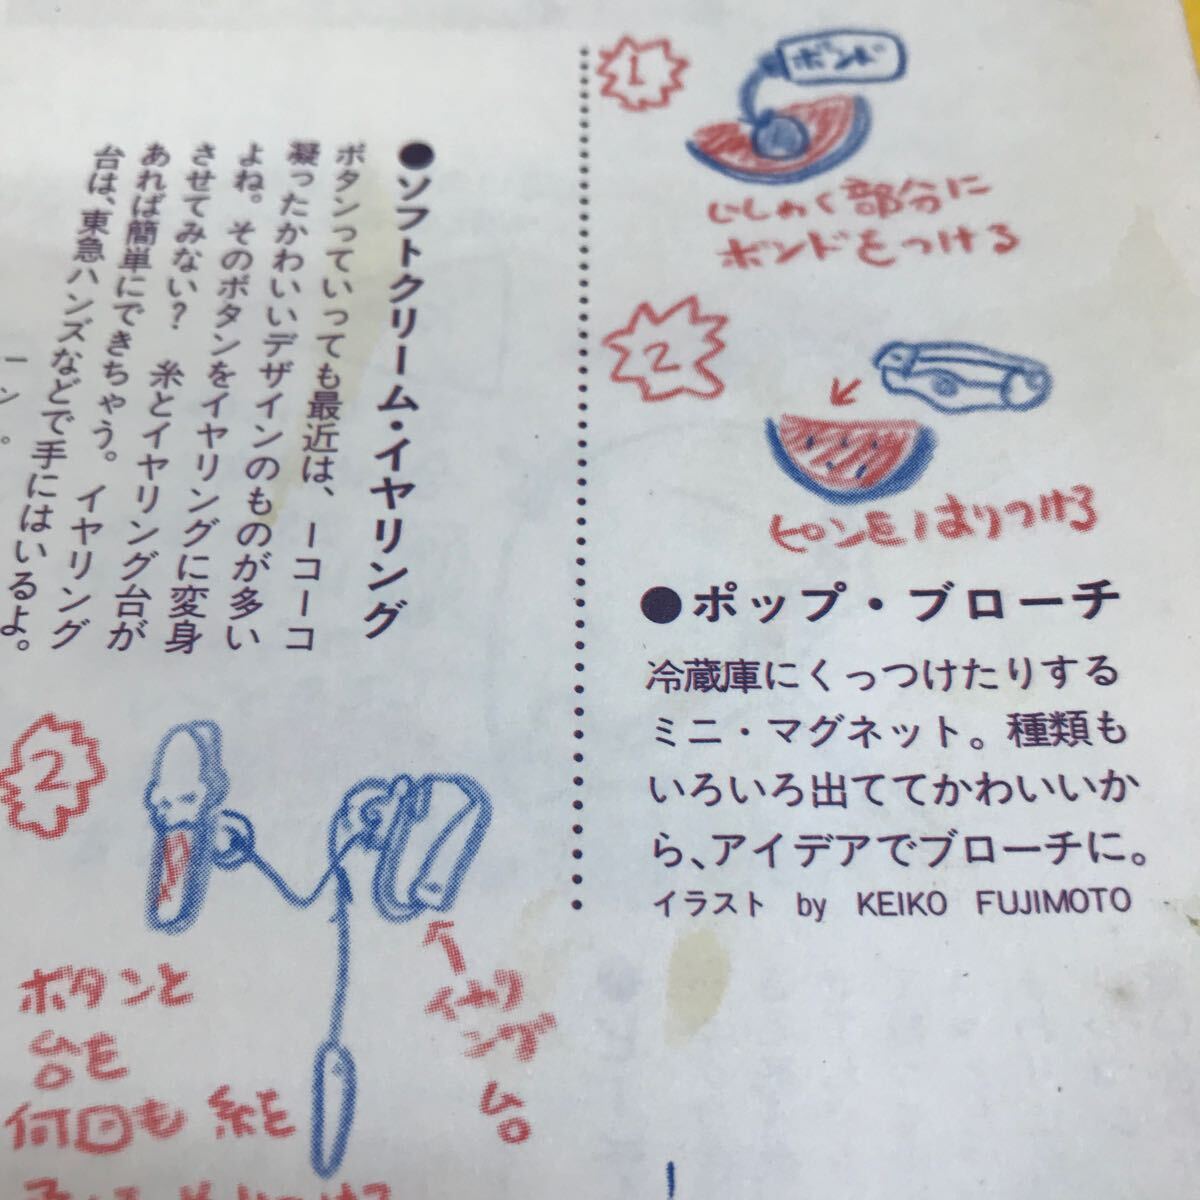 1
ボンド
じしゃく部分に
ボンドをつける
2
ピンをはりつける
●ポップ・ブローチ
冷蔵庫にくっつけたりする
ミニ・マグネット。種類も
いろいろ出ててかわいいか
ら、アイデアでブローチに。
イラスト by KEIKO FUJIMOTO
●ソフトクリーム・イヤリング
ボタンっていっても最近は、一コ一コ
凝ったかわいいデザインのものが多い
よね。そのボタンをイヤリングに変身
させてみない? 糸とイヤリング台が
あれば簡単にできちゃう。イヤリング
台は、東急ハンズなどで手にはいるよ。
2
イヤリ
ング
台
ボタンと
台を
何回も 糸を